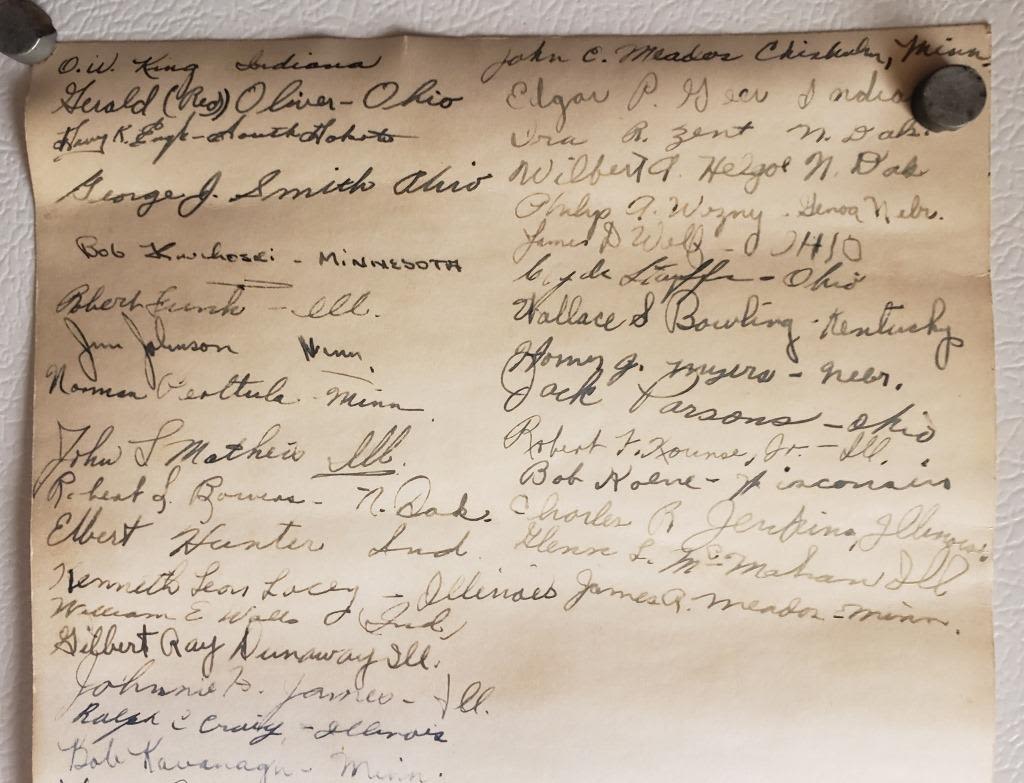 O.W. King Indiana
Gerald (Red) Oliver - Ohio
Harry K. - South Dakota
George J. Smith Ohio
Bob - MINNESOTA
Robert Funk - Ill.
Jim Johnson Minn.
Norman Perttula - Minn
John S Matheis Ill.
Robert L. Bowers - N. Dak.
Elbert Hunter Ind
Kenneth Leon Locey - Illinois
William E Walls (Ind)
Gilbert Ray Dunaway Ill.
Johnnie B. James - Ill.
Ralph C Craig - Illinois
Bob Kavanagh - Minn.
John C. Meados Chisholm, Minn.
Edgar P. Geer India
Ira R. Zent N. Dak.
Wilbert A. Helgoe N. Dak
Philip A. Wozny - Genoa Nebr.
James D Welf - OHIO
Clyde Stauffer - Ohio
Wallace S Bowling - Kentucky
Homer J. Myers - Nebr.
Jack Parsons - Ohio
Robert F. Kounse, Jr. - Ill.
Bob Koene - Wisconsin
Charles R Jenkins, Illinois
Glenn L. McMahan Ill
James R. Meados - Minn.